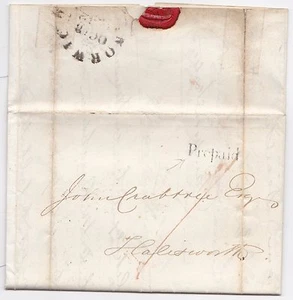 NORWICH
OC 12
Prepaid
John Crabtree Esqr
Halesworth